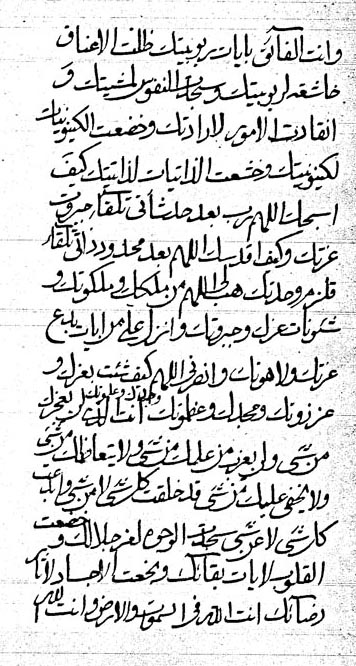 وانت الفائق بايات ربوبيتك ظلت الاعناق
خاضعة لربوبيتك وسجدت النفوس لمشيتك و
انقادت الامور لارادتك وخضعت الكينونيات
لكينونيتك وخشعت الذاتيات لذاتيتك كيف
اسبحك اللهم رب بعد حدثانى تلقاء جبروت
عزتك وكيف اقدسك اللهم بعد محدود ذاتى تلقاء
قلزم وحدتك هب لى اللهم من ملكك وملكوتك و
شئونات عزك وجبروتك وانزل على من ايات بدع
عزتك ولاهوتك وانصرنى اللهم كيف شئت بعزك و
عززوتك ومجدك وعظموتك انت الذى لن يعجزك
من شى ولن يعزب من علمك من شى ولا يتعاظمك من شى
ولا يخفى عليك من شى قد خلقت كل شى لا من شى
كل شى لا عن شى سجدت الوجوه لعز جلالك و خضعت
القلوب لايات بقائك و بخعت الاجساد لاثار
رضائك انت الله فى السموات والارض وانت الله